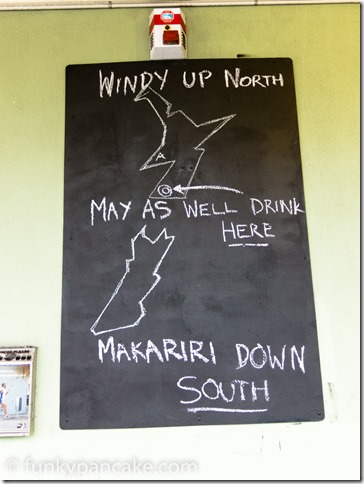 WINDY UP NORTH
A
MAY AS WELL DRINK
HERE
MAKARIRI DOWN
SOUTH
© funkypancake.com